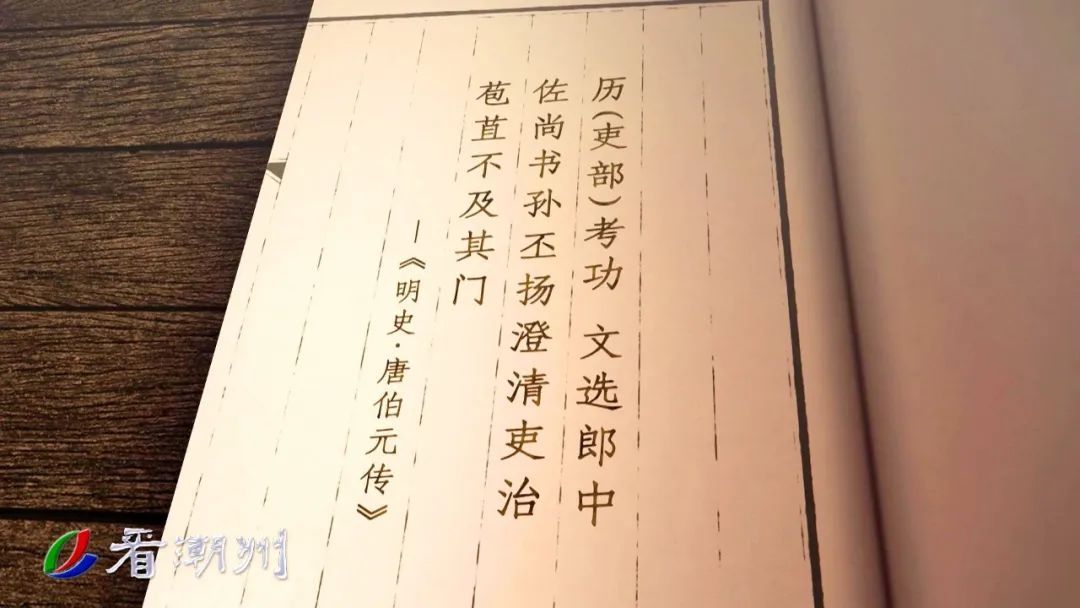 历(吏部)考功 文选郎中
佐尚书孙丕扬澄清吏治
苞苴不及其门
—《明史·唐伯元传》
看潮州